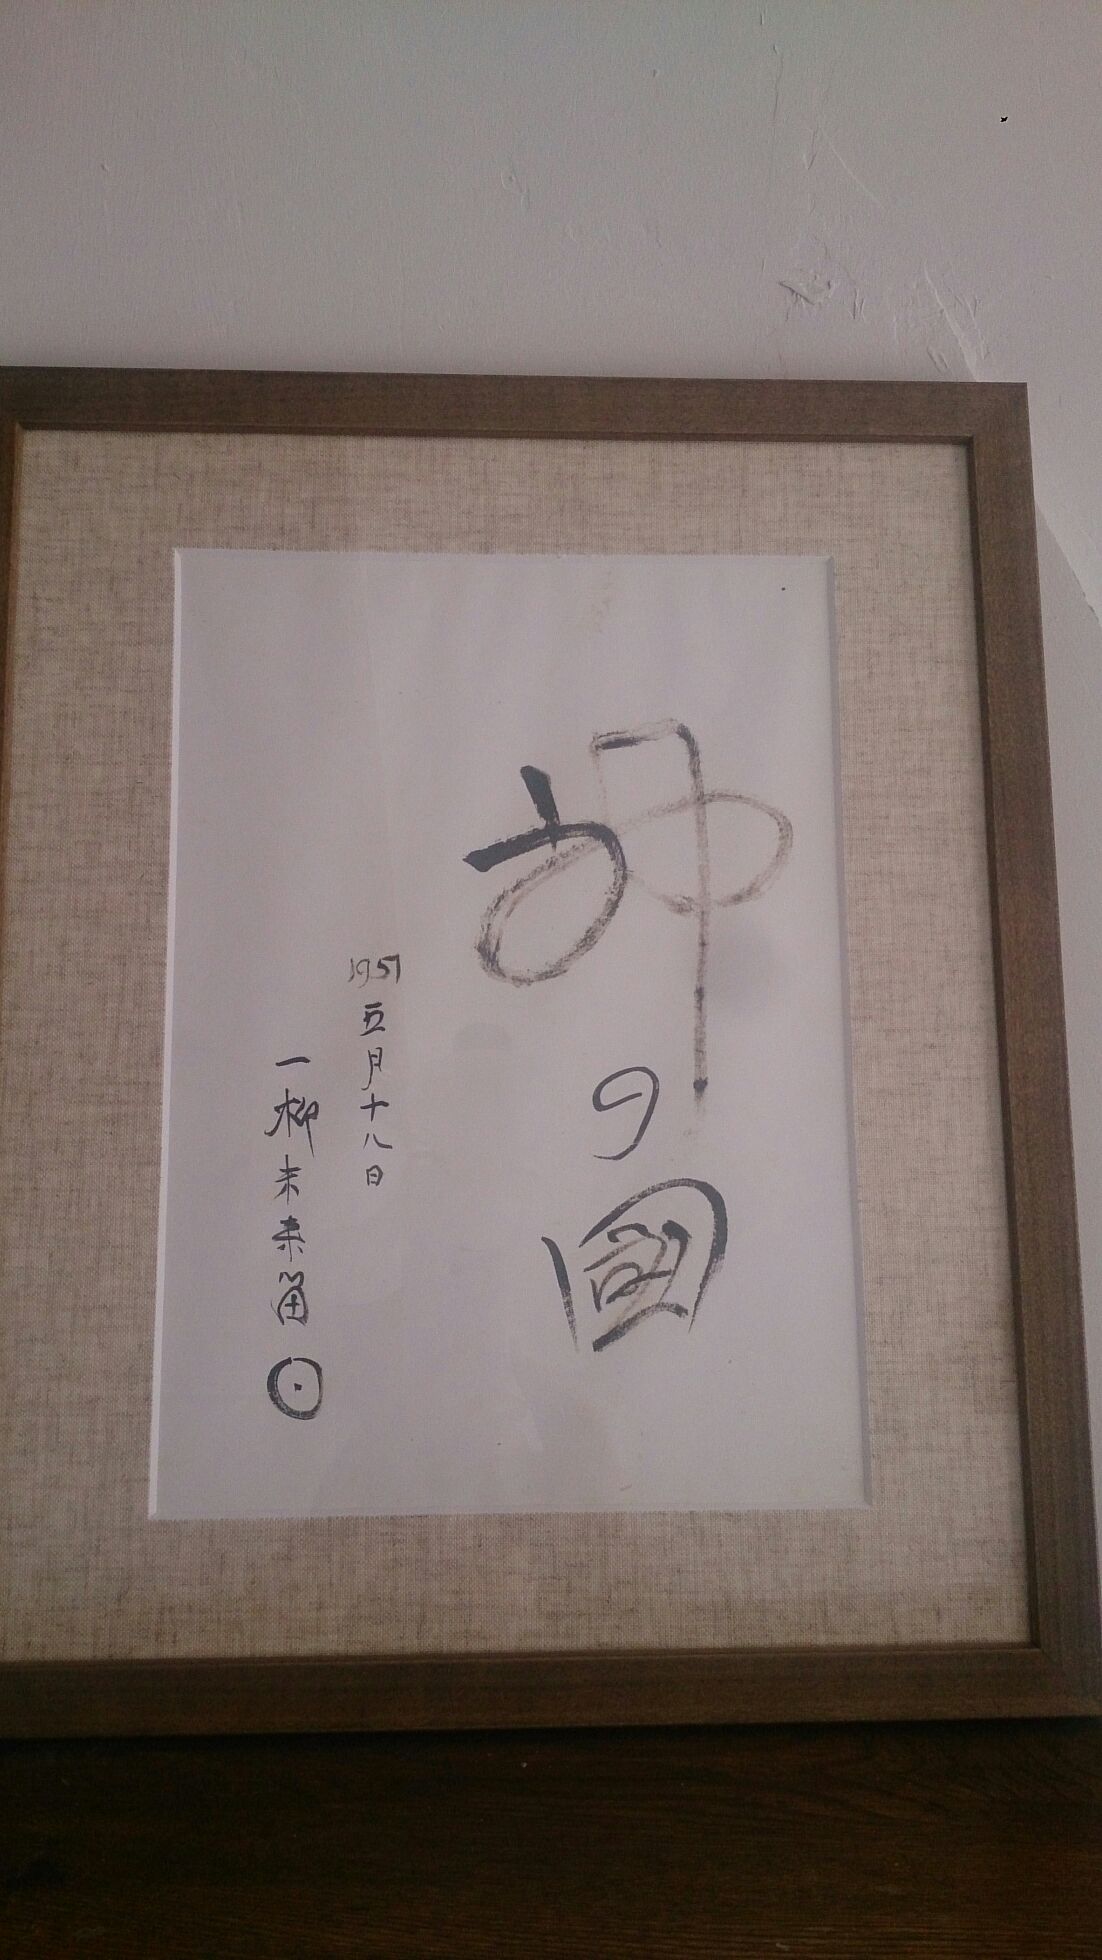 神の國
1951
五月十八日
一柳米来留